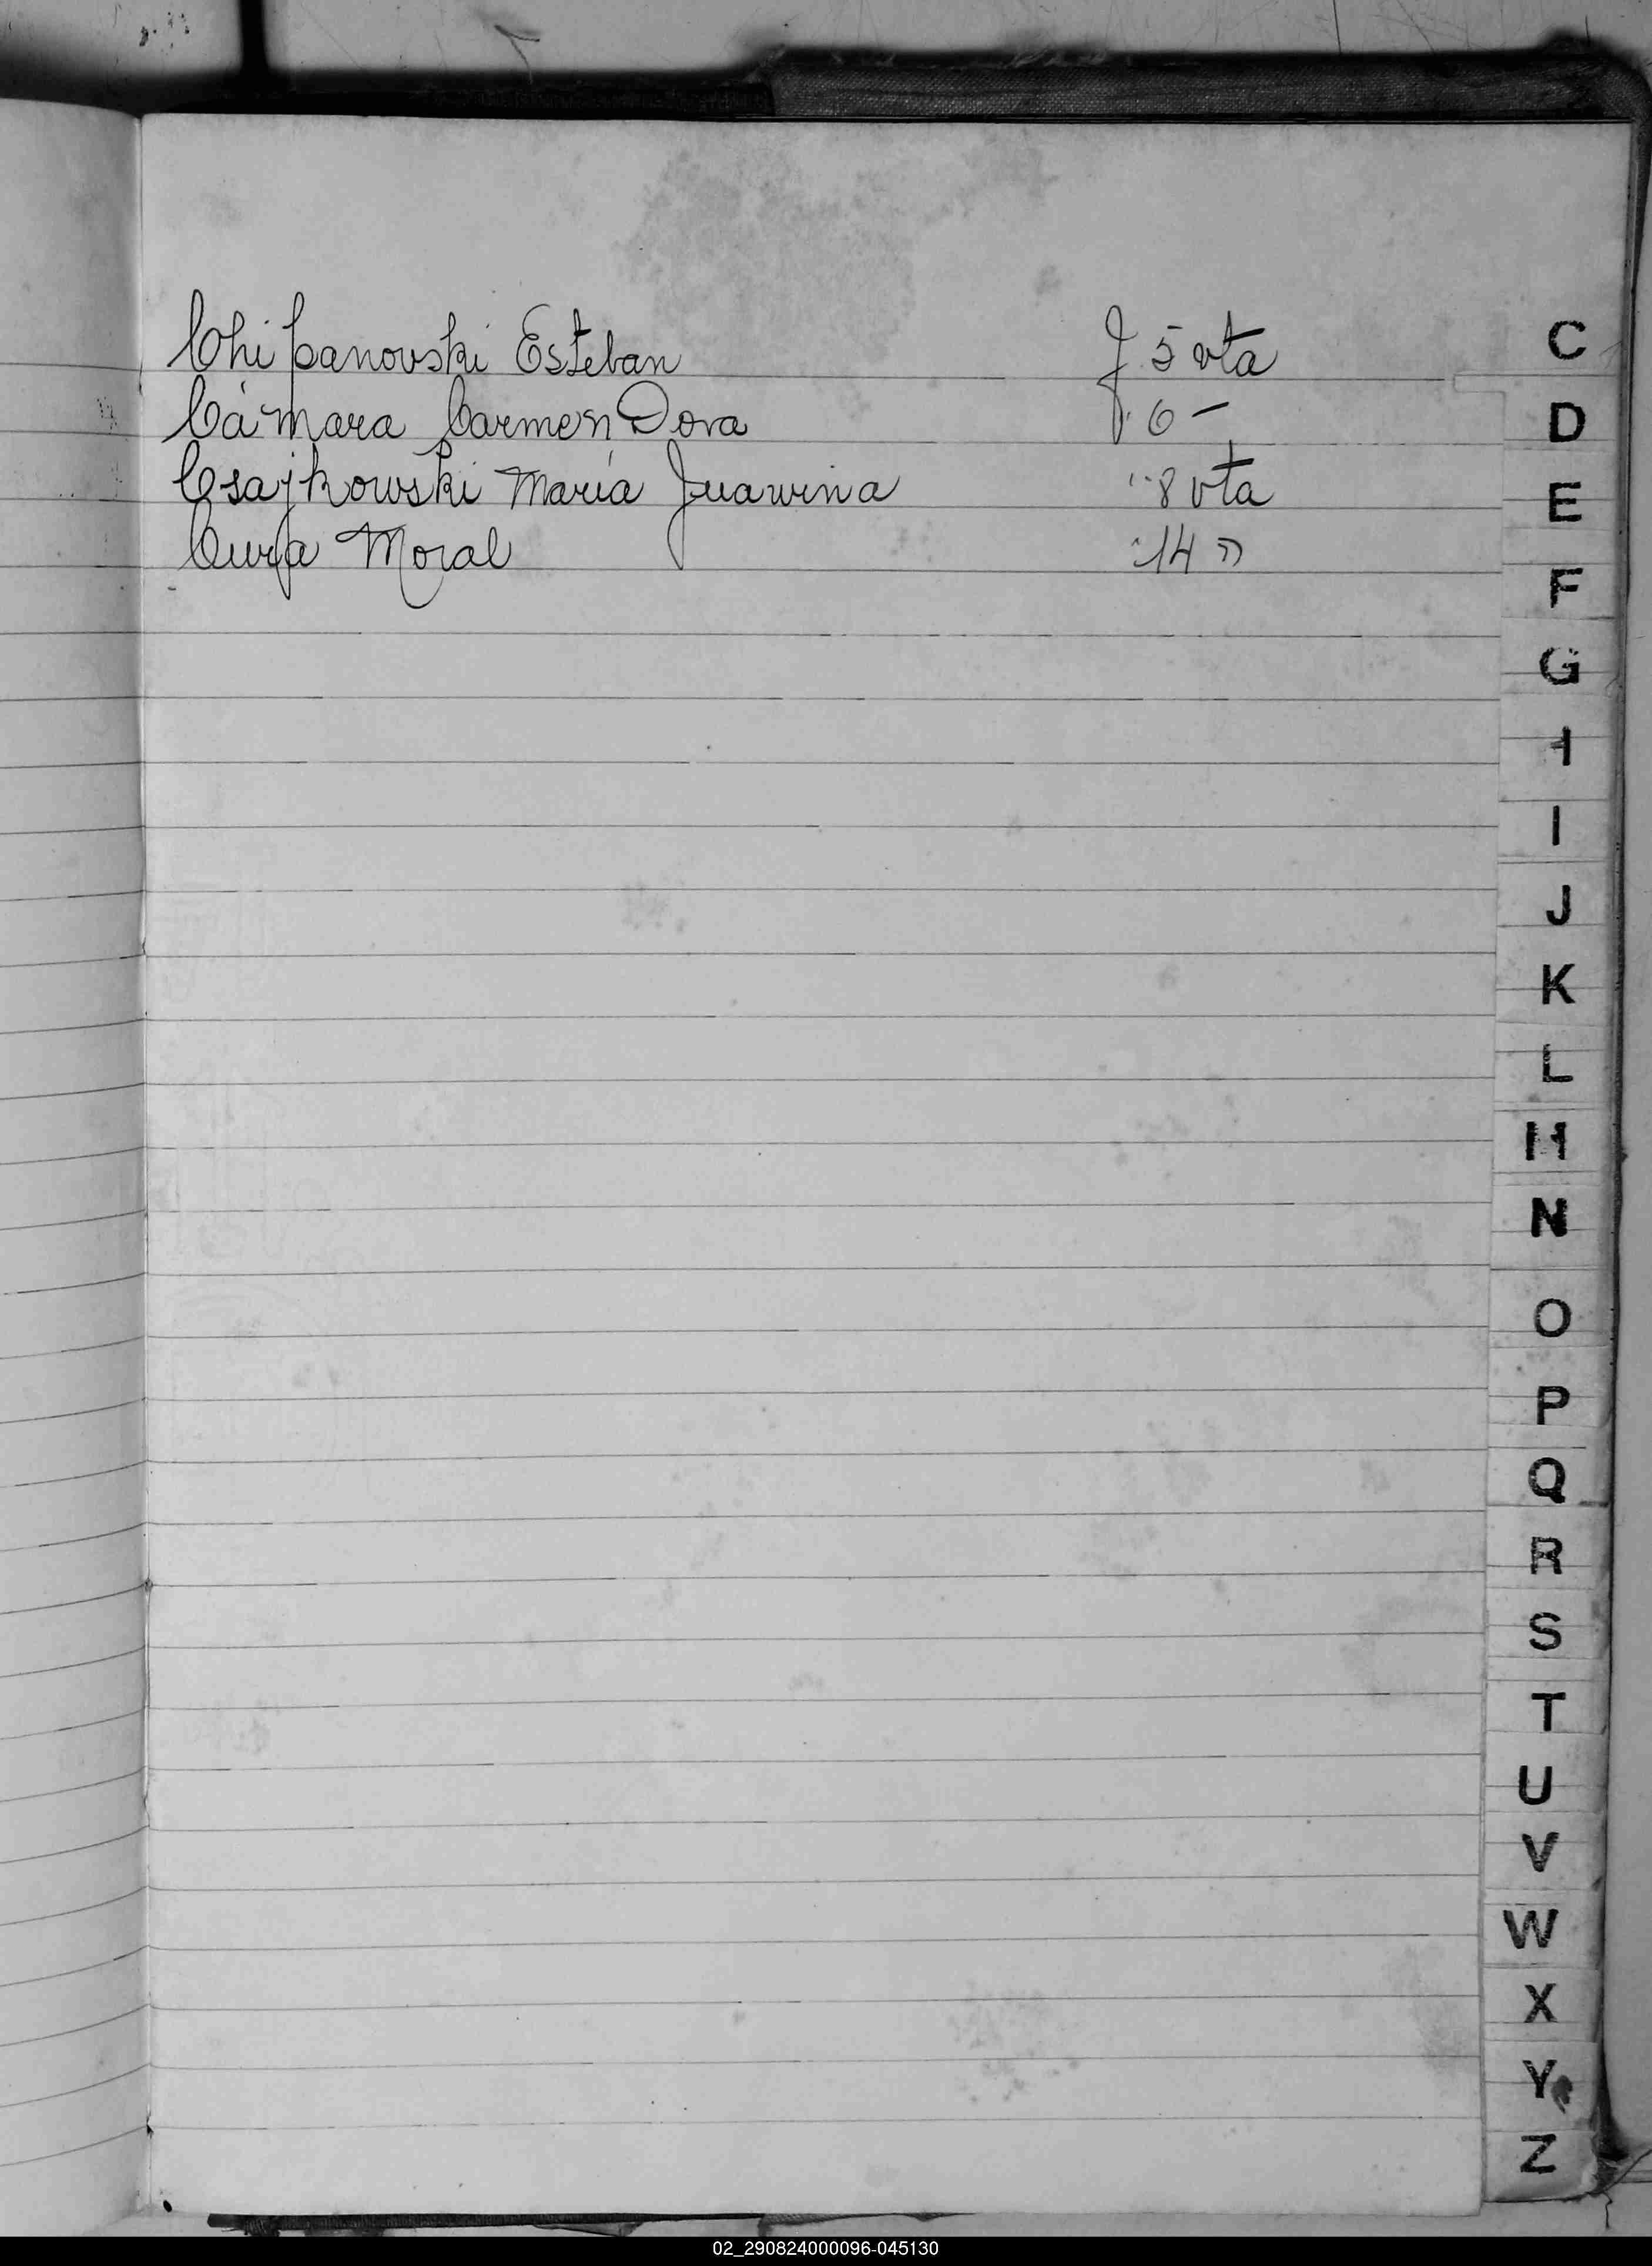 Chipanovski Esteban f 5 vta
Cámara Carmen Dora f. 6 —
Csajkowski María Juawina " 8 vta
Moral " 14 "
C
D
E
F
G
H
I
J
K
L
M
N
O
P
Q
R
S
T
U
V
W
X
Y
Z
02_290824000096-045130